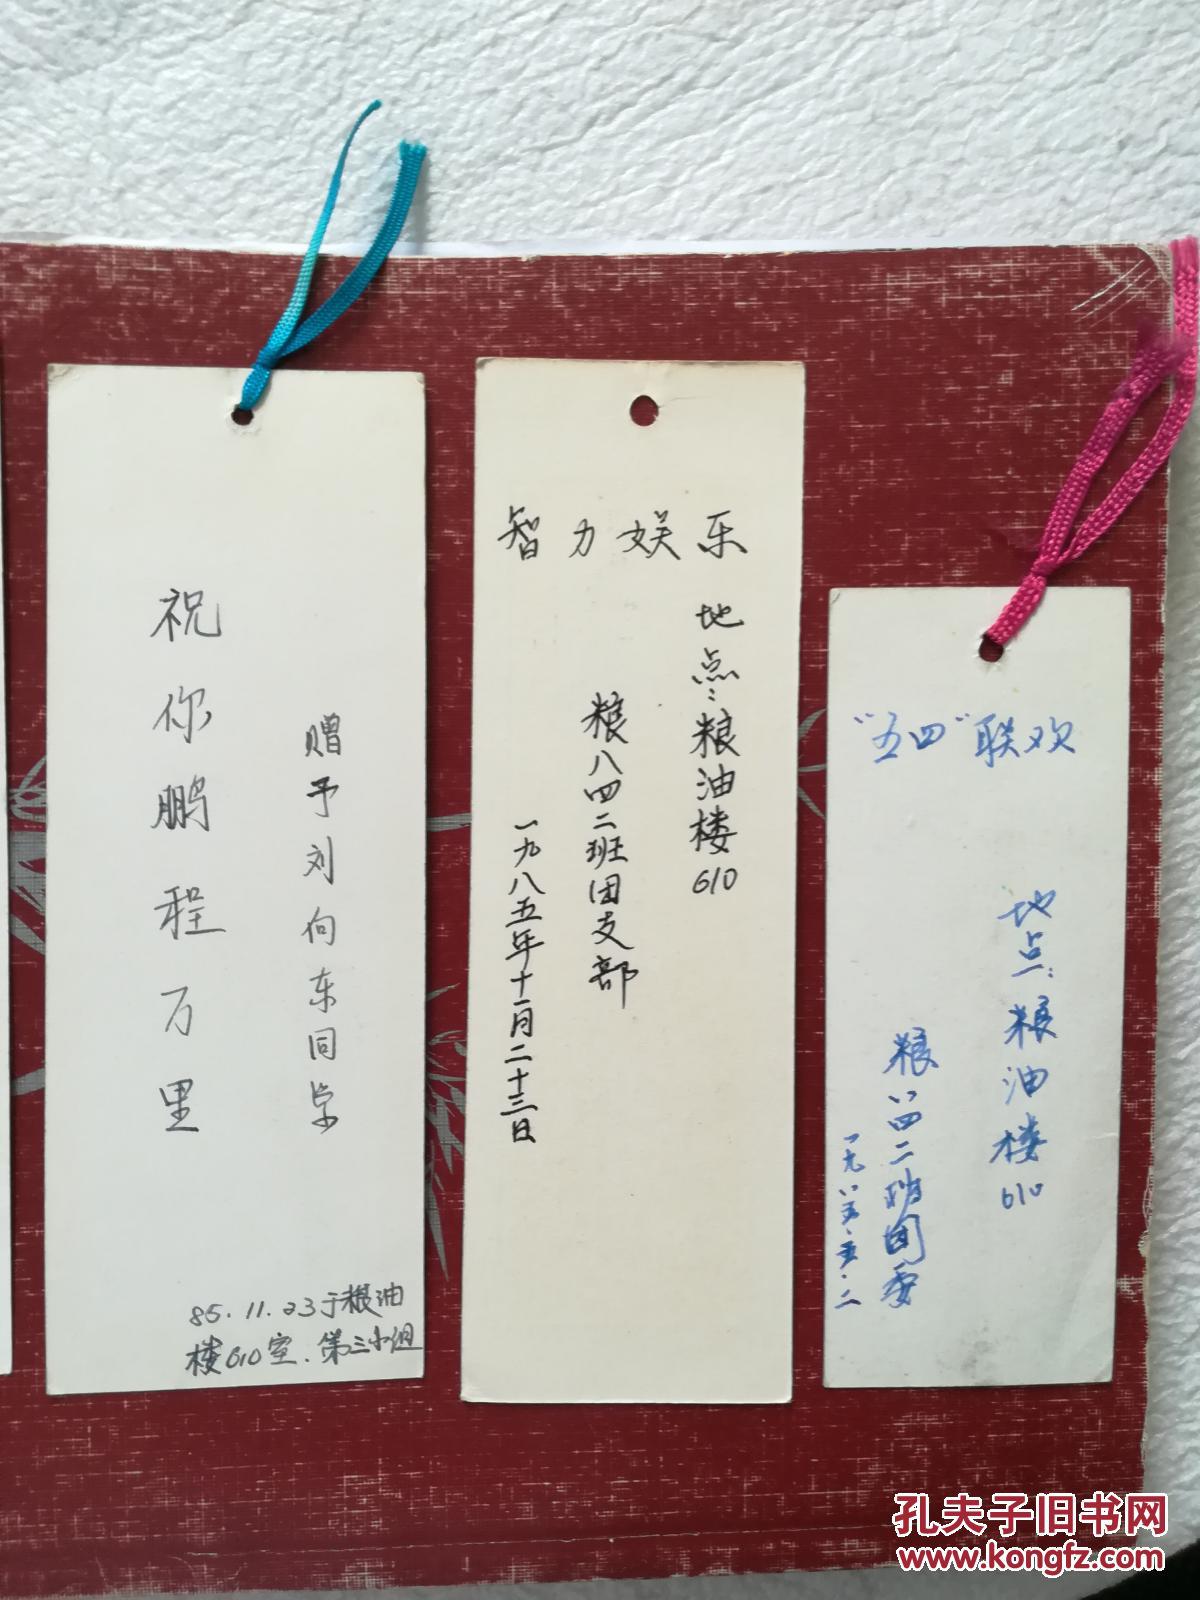 赠予刘向东同学
祝你鹏程万里
85.11.23于粮油
楼610室.第三小组
智力娱乐
地点:粮油楼610
粮八四二班团支部
一九八五年十一月二十三日
"五四"联欢
地点:粮油楼610
粮八四二班团委
一九八五.五.二
孔夫子旧书网
www.kongfz.com